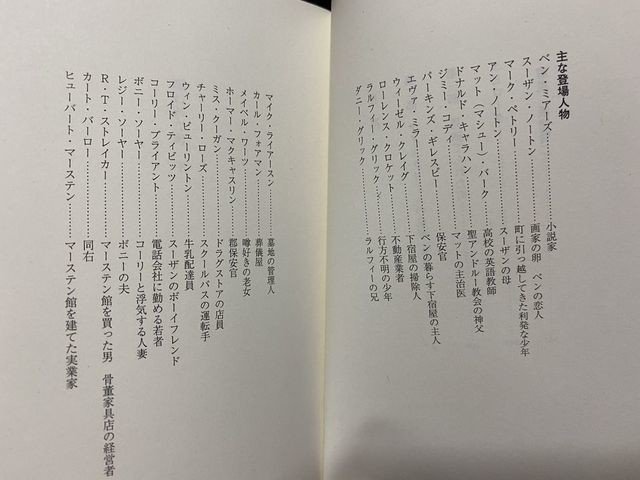 主な登場人物
ベン・ミアーズ………小説家
スーザン・ノートン………画家の卵 ベンの恋人
マーク・ペトリー………町に引っ越してきた利発な少年
アン・ノートン………スーザンの母
マット（マシュー）・バーク………高校の英語教師
ドナルド・キャラハン………聖アンドルー教会の神父
ジミー・コディ………マットの主治医
パーキンズ・ギレスピー………保安官
エヴァ・ミラー………ベンの暮らす下宿屋の主人
ウィーゼル・クレイグ………下宿屋の掃除人
ローレンス・クロケット………不動産業者
ラルフィー・グリック………行方不明の少年
ダニー・グリック………ラルフィーの兄
マイク・ライアースン………墓地の管理人
カール・フォアマン………葬儀屋
メイベル・ワーツ………噂好きの老女
ホーマー・マクキャスリン………郡保安官
ミス・クーガン………ドラグストアの店員
チャーリー・ローズ………スクールバスの運転手
ウィン・ピューリントン………牛乳配達員
フロイド・ティビッツ………スーザンのボーイフレンド
コーリー・ブライアント………電話会社に勤める若者
ボニー・ソーヤー………コーリーと浮気する人妻
レジー・ソーヤー………ボニーの夫
R・T・ストレイカー………マーステン館を買った男 骨董家具店の経営者
カート・バーロー………同右
ヒューバート・マーステン………マーステン館を建てた実業家